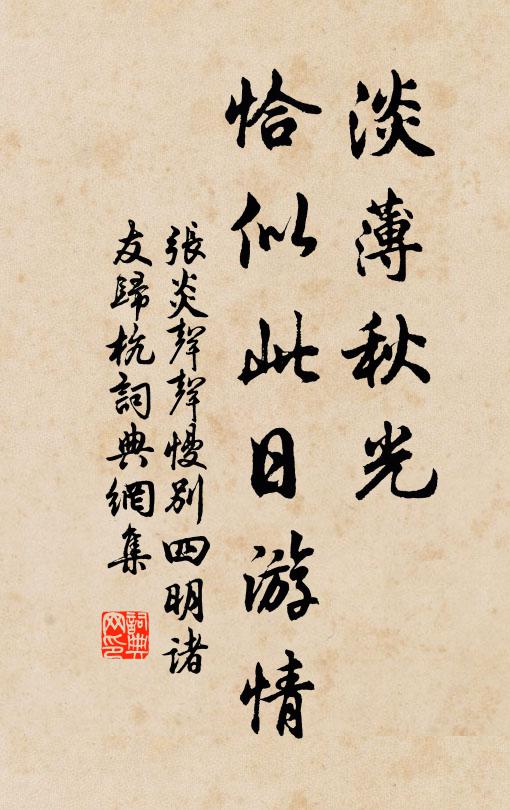 淡薄秋光
恰似此日游情
張炎聲聲慢別四明諸
友歸杭詞典網集
詞典
网印